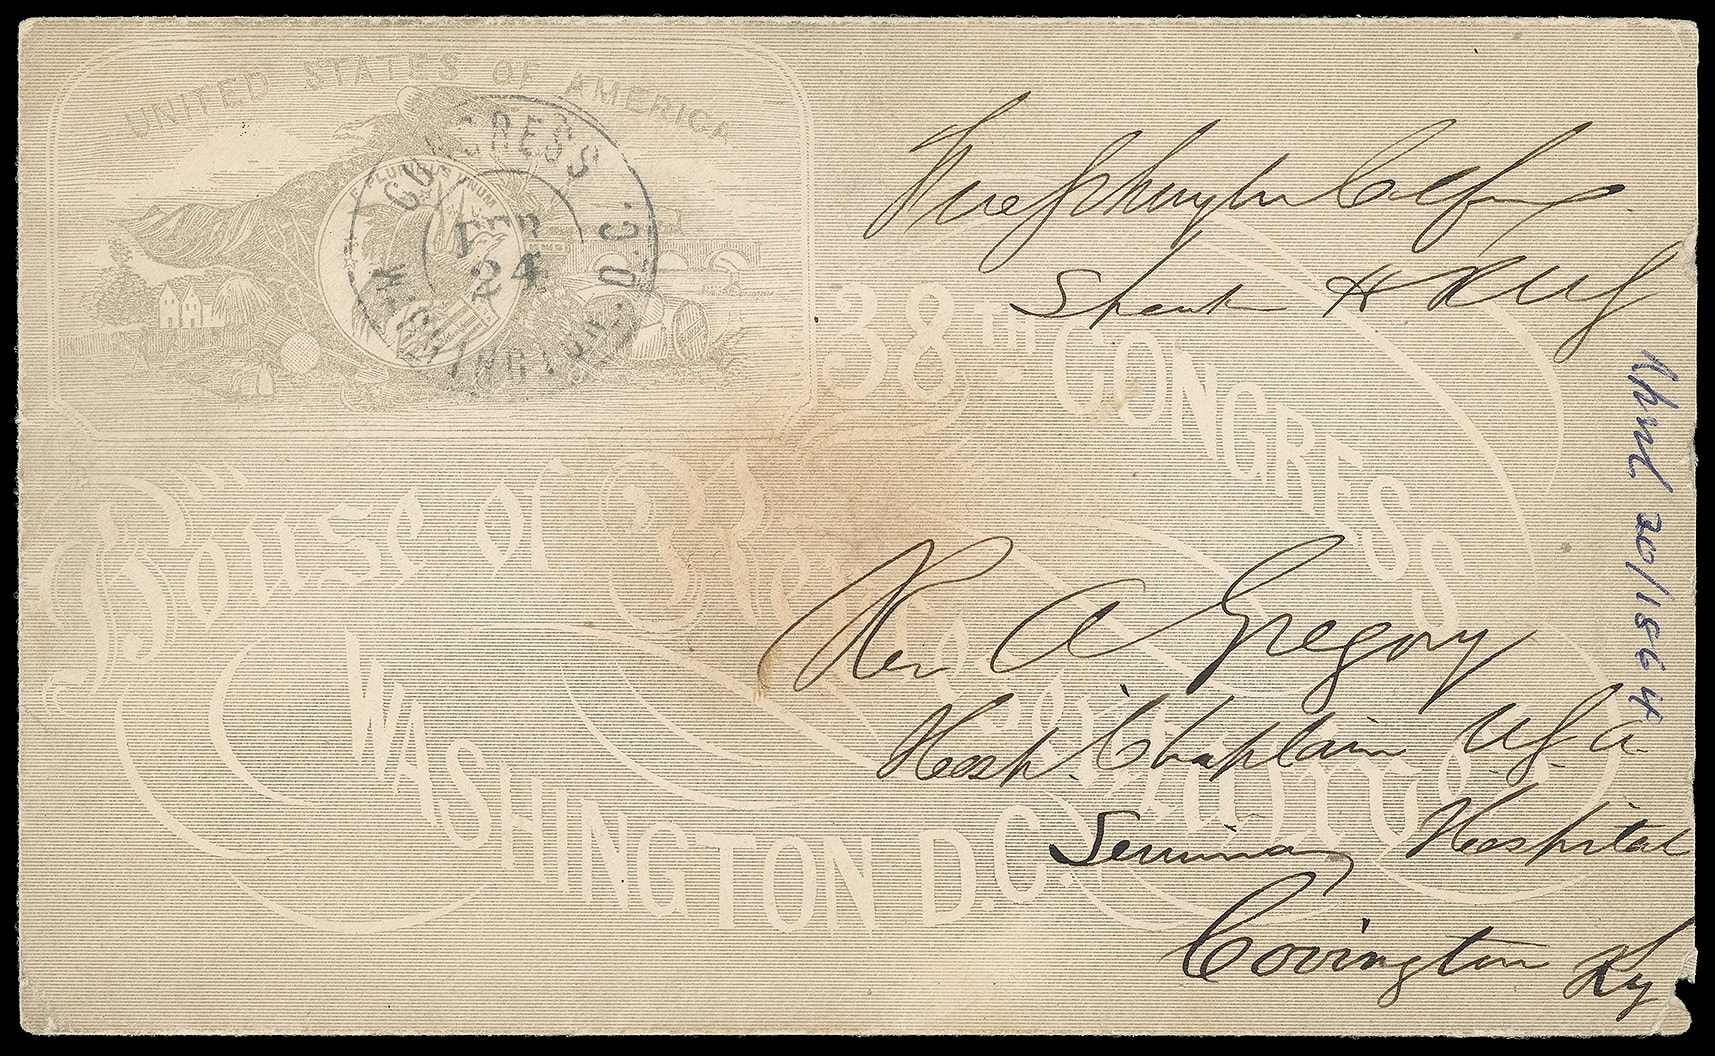 UNITED STATES OF AMERICA
E PLURIBUS UNUM
WASHINGTON. D.C. CONGRESS
FEB
24
Free Schuyler Colfax
H
38TH CONGRESS
House of Representatives
WASHINGTON D.C.
Rev A Gregory
Hosp. Chaplain U.S.A
Seminary Hospital
Covington Ky
20/1864